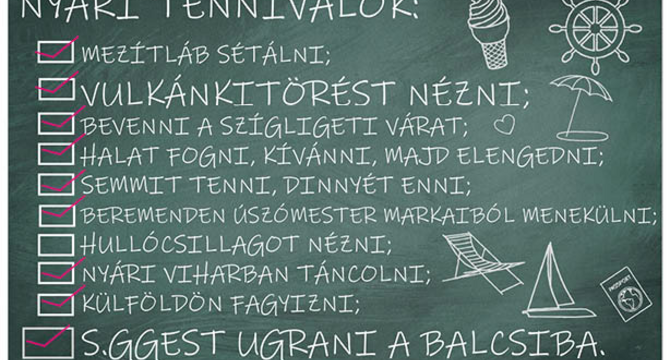 NYÁRI TENNIVALÓK:
MEZÍTLÁB SÉTÁLNI;
VULKÁNKITÖRÉST NÉZNI;
BEVENNI A SZÍGLIGETI VÁRAT;
HALAT FOGNI, KÍVÁNNI, MAJD ELENGEDNI;
SEMMIT TENNI, DINNYÉT ENNI;
BEREMENDEN ÚSZÓMESTER MARKAIBÓL MENEKÜLNI;
HULLÓCSILLAGOT NÉZNI;
NYÁRI VIHARBAN TÁNCOLNI;
KÜLFÖLDÖN FAGYIZNI;
PASSPORT
S.GGEST UGRANI A BALCSIBA.